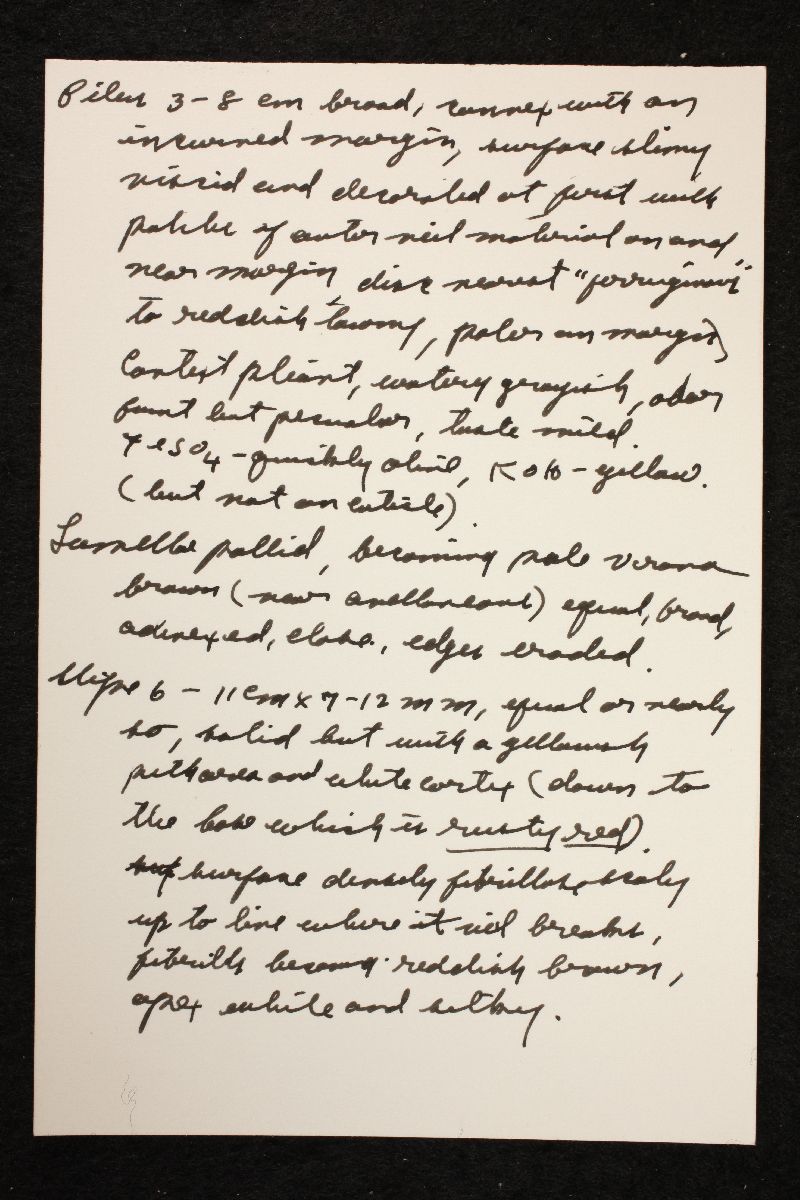 Pileus 3-8 cm broad, convex with an
incurved margin, surface slimy
viscid and decorated at first with
patches of outer veil material on and
near margin, disc nearest "ferruginous"
to reddish tawny, paler on margin,
Context pliant, watery grayish, odor
faint but peculiar, taste mild.
FeSO4 - quickly olive, KOH - yellow.
(but not on cuticle).
Lamellae pallid, becoming pale verona
brown (near avellaneous) equal, broad,
adnexed, close, edges eroded.
Stipe 6 - 11 cm x 7-12 mm, equal or nearly
so, solid but with a yellowish
pith area and white cortex (down to
the base which is rusty red).
surface densely fibrillose scaly
up to line where it veil breaks,
fibrils becoming reddish brown,
apex white and silky.